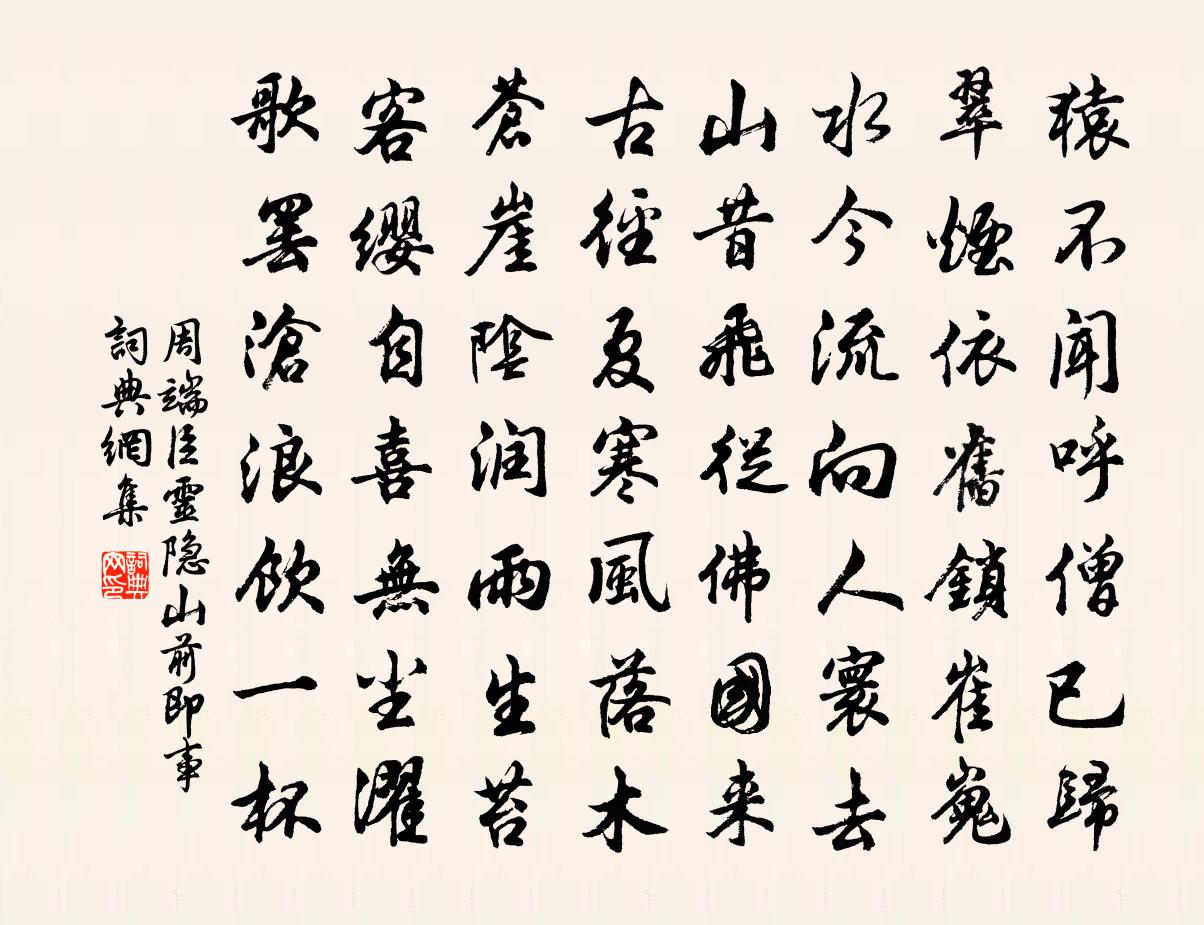 猿不聞呼僧已歸
翠煙依舊鎖崔嵬
水今流向人寰去
山昔飛從佛國来
古徑夏寒風落木
蒼崖陰润雨生苔
客缨自喜無尘濯
歌罢滄浪飲一杯
周端臣靈隐山前即事
詞典網集
詞典网印